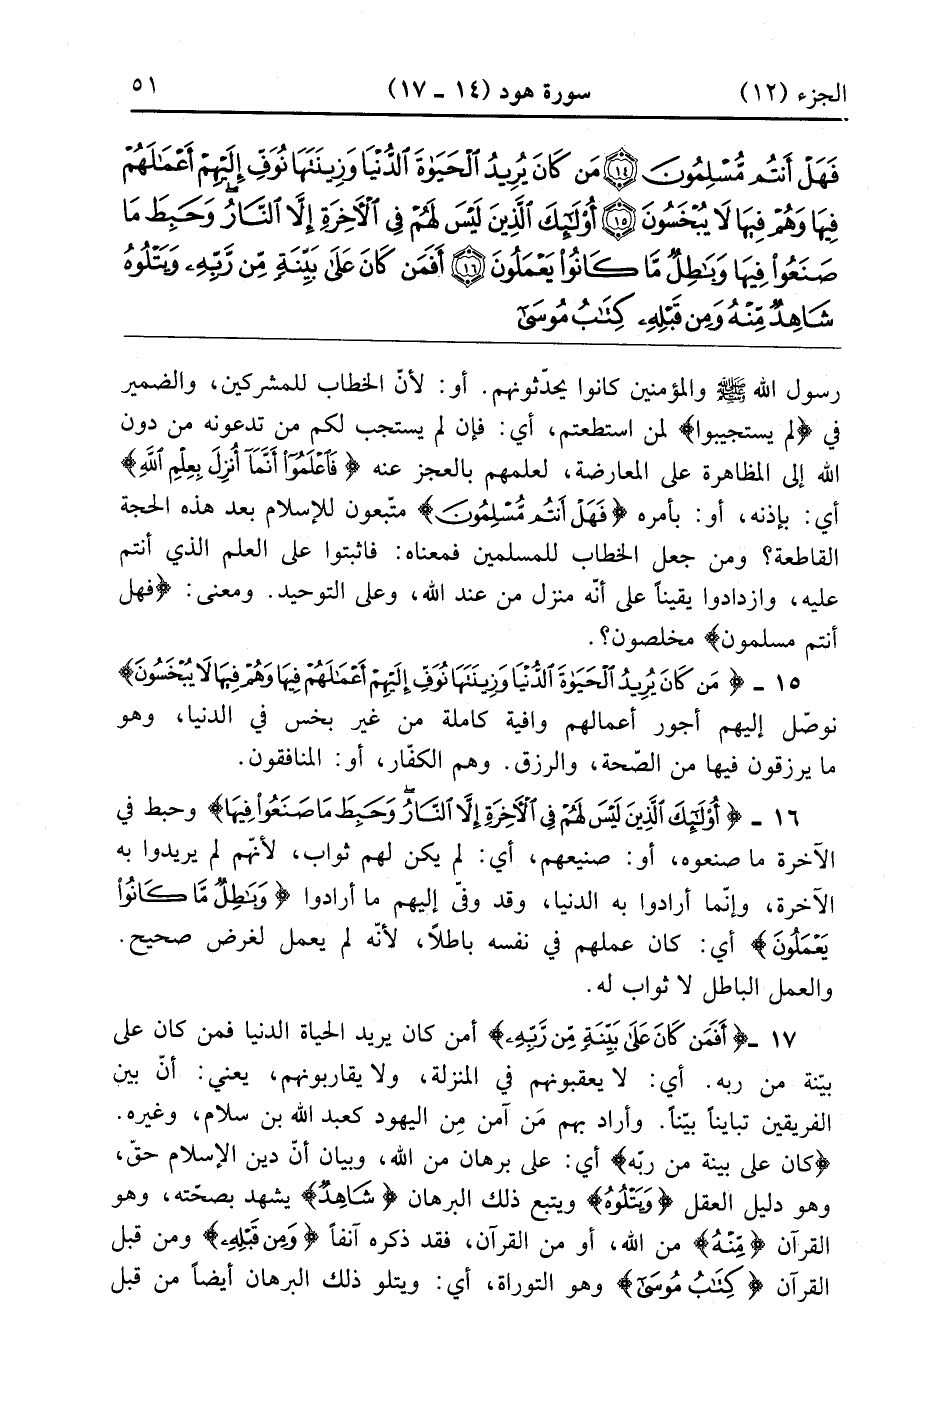 الجزء (١٢) سورة هود (١٤ ـ ١٧) ٥١
فَهَلْ أَنتُم مُّسْلِمُونَ ١٤ مَن كَانَ يُرِيدُ الْحَيَوٰةَ الدُّنْيَا وَزِينَتَهَا نُوَفِّ إِلَيْهِمْ أَعْمَـٰلَهُمْ
فِيهَا وَهُمْ فِيهَا لَا يُبْخَسُونَ ١٥ أُوْلَـٰٓئِكَ الَّذِينَ لَيْسَ لَهُمْ فِي الْآخِرَةِ إِلَّا النَّارُ ۖ وَحَبِطَ مَا
صَنَعُوا۟ فِيهَا وَبَـٰطِلٌ مَّا كَانُوا۟ يَعْمَلُونَ ١٦ أَفَمَن كَانَ عَلَىٰ بَيِّنَةٍ مِّن رَّبِّهِۦ وَيَتْلُوهُ
شَاهِدٌ مِّنْهُ وَمِن قَبْلِهِۦ كِتَـٰبُ مُوسَىٰٓ
رسول الله ﷺ والمؤمنين كانوا يحدّثونهم. أو: لأنّ الخطاب للمشركين، والضمير
في ﴿لم يستجيبوا﴾ لمن استطعتم، أي: فإن لم يستجب لكم من تدعونه من دون
الله إلى المظاهرة على المعارضة، لعلمهم بالعجز عنه ﴿فَاعْلَمُوٓا۟ أَنَّمَآ أُنزِلَ بِعِلْمِ اللَّهِ﴾
أي: بإذنه، أو: بأمره ﴿فَهَلْ أَنتُم مُّسْلِمُونَ﴾ متّبعون للإسلام بعد هذه الحجة
القاطعة؟ ومن جعل الخطاب للمسلمين فمعناه: فاثبتوا على العلم الذي أنتم
عليه، وازدادوا يقيناً على أنّه منزل من عند الله، وعلى التوحيد. ومعنى: ﴿فهل
أنتم مسلمون﴾ مخلصون؟.
١٥ ـ ﴿مَن كَانَ يُرِيدُ الْحَيَوٰةَ الدُّنْيَا وَزِينَتَهَا نُوَفِّ إِلَيْهِمْ أَعْمَـٰلَهُمْ فِيهَا وَهُمْ فِيهَا لَا يُبْخَسُونَ﴾
نوصّل إليهم أجور أعمالهم وافية كاملة من غير بخس في الدنيا، وهو
ما يرزقون فيها من الصّحة، والرزق. وهم الكفّار، أو: المنافقون.
١٦ ـ ﴿أُوْلَـٰٓئِكَ الَّذِينَ لَيْسَ لَهُمْ فِي الْآخِرَةِ إِلَّا النَّارُ ۖ وَحَبِطَ مَا صَنَعُوا۟ فِيهَا﴾ وحبط في
الآخرة ما صنعوه، أو: صنيعهم، أي: لم يكن لهم ثواب، لأنّهم لم يريدوا به
الآخرة، وإنّما أرادوا به الدنيا، وقد وفىّ إليهم ما أرادوا ﴿وَبَـٰطِلٌ مَّا كَانُوا۟
يَعْمَلُونَ﴾ أي: كان عملهم في نفسه باطلاً، لأنّه لم يعمل لغرض صحيح.
والعمل الباطل لا ثواب له.
١٧ ـ ﴿أَفَمَن كَانَ عَلَىٰ بَيِّنَةٍ مِّن رَّبِّهِۦ﴾ أمن كان يريد الحياة الدنيا فمن كان على
بيّنة من ربه. أي: لا يعقبونهم في المنزلة، ولا يقاربونهم، يعني: أنّ بين
الفريقين تبايناً بيّناً. وأراد بهم مَن آمن مِن اليهود كعبد الله بن سلام، وغيره.
﴿كان على بينة من ربّه﴾ أي: على برهان من الله، وبيان أنّ دين الإسلام حقّ،
وهو دليل العقل ﴿وَيَتْلُوهُ﴾ ويتبع ذلك البرهان ﴿شَاهِدٌ﴾ يشهد بصحّته، وهو
القرآن ﴿مِّنْهُ﴾ من الله، أو من القرآن، فقد ذكره آنفاً ﴿وَمِن قَبْلِهِۦ﴾ ومن قبل
القرآن ﴿كِتَـٰبُ مُوسَىٰٓ﴾ وهو التوراة، أي: ويتلو ذلك البرهان أيضاً من قبل